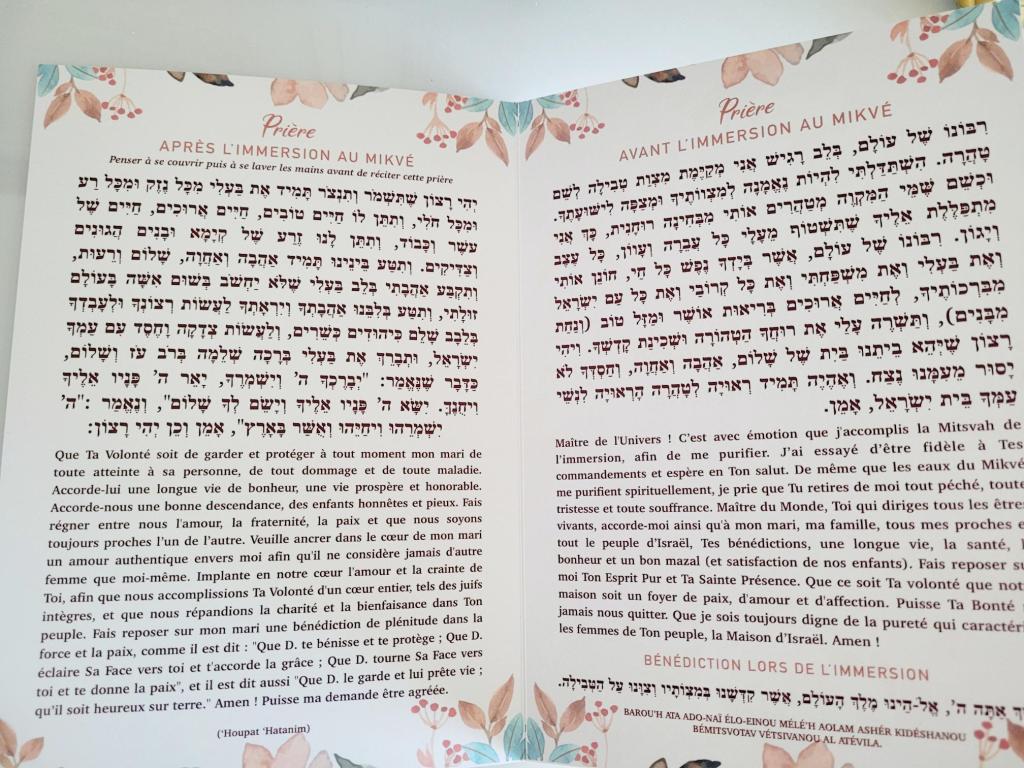 Prière
APRÈS L'IMMERSION AU MIKVÉ
Penser à se couvrir puis à se laver les mains avant de réciter cette prière
יְהִי רָצוֹן שֶׁתִּשְׁמֹר וְתִנְצֹר תָּמִיד אֶת בַּעְלִי מִכָּל נֶזֶק וּמִכָּל רַע
וּמִכָּל חֹלִי, וְתִתֵּן לוֹ חַיִּים טוֹבִים, חַיִּים אֲרוּכִים, חַיִּים שֶׁל
עֹשֶׁר וְכָבוֹד, וְתִתֵּן לָנוּ זֶרַע שֶׁל קַיָּמָא וּבָנִים הֲגוּנִים
וְצַדִּיקִים. וְתִטַּע בֵּינֵינוּ תָּמִיד אַהֲבָה וְאַחְוָה, שָׁלוֹם וְרֵעוּת,
וְתִקְבַּע אַהֲבָתִי בְּלֵב בַּעְלִי שֶׁלֹּא יַחְשֹׁב בְּשׁוּם אִשָּׁה בָּעוֹלָם
זוּלָתִי, וְתִטַּע בְּלִבֵּנוּ אַהֲבָתְךָ וְיִרְאָתְךָ לַעֲשׂוֹת רְצוֹנְךָ וּלְעָבְדְךָ
בְּלֵבָב שָׁלֵם כִּיהוּדִים כְּשֵׁרִים, וְלַעֲשׂוֹת צְדָקָה וְחֶסֶד עִם עַמְּךָ
יִשְׂרָאֵל, וּתְבָרֵךְ אֶת בַּעְלִי בְּרָכָה שְׁלֵמָה בְּרֹב עֹז וְשָׁלוֹם,
כַּדָּבָר שֶׁנֶּאֱמַר: "יְבָרֶכְךָ ה' וְיִשְׁמְרֶךָ, יָאֵר ה' פָּנָיו אֵלֶיךָ
וִיחֻנֶּךָּ. יִשָּׂא ה' פָּנָיו אֵלֶיךָ וְיָשֵׂם לְךָ שָׁלוֹם", וְנֶאֱמַר :"ה'
יִשְׁמְרֵהוּ וִיחַיֵּהוּ וְאֻשַּׁר בָּאָרֶץ", אָמֵן וְכֵן יְהִי רָצוֹן:
Que Ta Volonté soit de garder et protéger à tout moment mon mari de
toute atteinte à sa personne, de tout dommage et de toute maladie.
Accorde-lui une longue vie de bonheur, une vie prospère et honorable.
Accorde-nous une bonne descendance, des enfants honnêtes et pieux. Fais
régner entre nous l'amour, la fraternité, la paix et que nous soyons
toujours proches l'un de l'autre. Veuille ancrer dans le cœur de mon mari
un amour authentique envers moi afin qu'il ne considère jamais d'autre
femme que moi-même. Implante en notre cœur l'amour et la crainte de
Toi, afin que nous accomplissions Ta Volonté d'un cœur entier, tels des juifs
intègres, et que nous répandions la charité et la bienfaisance dans Ton
peuple. Fais reposer sur mon mari une bénédiction de plénitude dans la
force et la paix, comme il est dit : "Que D. te bénisse et te protège ; Que D.
éclaire Sa Face vers toi et t'accorde la grâce ; Que D. tourne Sa Face vers
toi et te donne la paix", et il est dit aussi "Que D. le garde et lui prête vie ;
qu'il soit heureux sur terre." Amen ! Puisse ma demande être agréée.
('Houpat 'Hatanim)
Prière
AVANT L'IMMERSION AU MIKVÉ
רִבּוֹנוֹ שֶׁל עוֹלָם, בְּלֵב רָגִישׁ אֲנִי מְקַיֶּמֶת מִצְוַת טְבִילָה לְשֵׁם
טָהֳרָה. הִשְׁתַּדַּלְתִּי לִהְיוֹת נֶאֱמָנָה לְמִצְוֹתֶיךָ וּמְצַפָּה לִישׁוּעָתֶךָ.
וּכְשֵׁם שֶׁמֵּי הַמִּקְוֶה מְטַהֲרִים אוֹתִי מִבְּחִינָה רוּחָנִית, כָּךְ אֲנִי
מִתְפַּלֶּלֶת אֵלֶיךָ שֶׁתִּשְׁטוֹף מֵעָלַי כָּל עֲבֵרָה וְעָוֹן, כָּל עֶצֶב
וְיָגוֹן. רִבּוֹנוֹ שֶׁל עוֹלָם, אֲשֶׁר בְּיָדְךָ נֶפֶשׁ כָּל חַי, חוֹנֵן אוֹתִי
וְאֶת בַּעְלִי וְאֶת מִשְׁפַּחְתִּי וְאֶת כָּל קְרוֹבַי וְאֶת כָּל עַם יִשְׂרָאֵל
מִבִּרְכוֹתֶיךָ, לְחַיִּים אֲרוּכִים בְּרִיאוּת אוֹשֶׁר וּמַזָּל טוֹב (וְנַחַת
מִבָּנִים), וְתַשְׁרֶה עָלַי אֶת רוּחֲךָ הַטְּהוֹרָה וּשְׁכִינַת קָדְשֶׁךָ. וִיהִי
רָצוֹן שֶׁיְּהֵא בֵּיתֵנוּ בַּיִת שֶׁל שָׁלוֹם, אַהֲבָה וְאַחְוָה, וְחַסְדְּךָ לֹא
יָסוּר מֵעִמָּנוּ נֶצַח. וְאֶהְיֶה תָּמִיד רְאוּיָה לְטָהֳרָה הָרְאוּיָה לִנְשֵׁי
עַמְּךָ בֵּית יִשְׂרָאֵל, אָמֵן.
Maître de l'Univers ! C'est avec émotion que j'accomplis la Mitsvah de
l'immersion, afin de me purifier. J'ai essayé d'être fidèle à Tes
commandements et espère en Ton salut. De même que les eaux du Mikvé
me purifient spirituellement, je prie que Tu retires de moi tout péché, toute
tristesse et toute souffrance. Maître du Monde, Toi qui diriges tous les êtres
vivants, accorde-moi ainsi qu'à mon mari, ma famille, tous mes proches e
tout le peuple d'Israël, Tes bénédictions, une longue vie, la santé, l
bonheur et un bon mazal (et satisfaction de nos enfants). Fais reposer su
moi Ton Esprit Pur et Ta Sainte Présence. Que ce soit Ta volonté que not
maison soit un foyer de paix, d'amour et d'affection. Puisse Ta Bonté
jamais nous quitter. Que je sois toujours digne de la pureté qui caractéri
les femmes de Ton peuple, la Maison d'Israël. Amen !
BÉNÉDICTION LORS DE L'IMMERSION
אַתָּה ה', אֱ-לֹהֵינוּ מֶלֶךְ הָעוֹלָם, אֲשֶׁר קִדְּשָׁנוּ בְּמִצְוֹתָיו וְצִוָּנוּ עַל הַטְּבִילָה.
BAROU'H ATA ADO-NAÏ ÉLO-EINOU MÉLÉ'H AOLAM ASHÉR KIDÉSHANOU
BÉMITSVOTAV VÉTSIVANOU AL ATÉVILA.